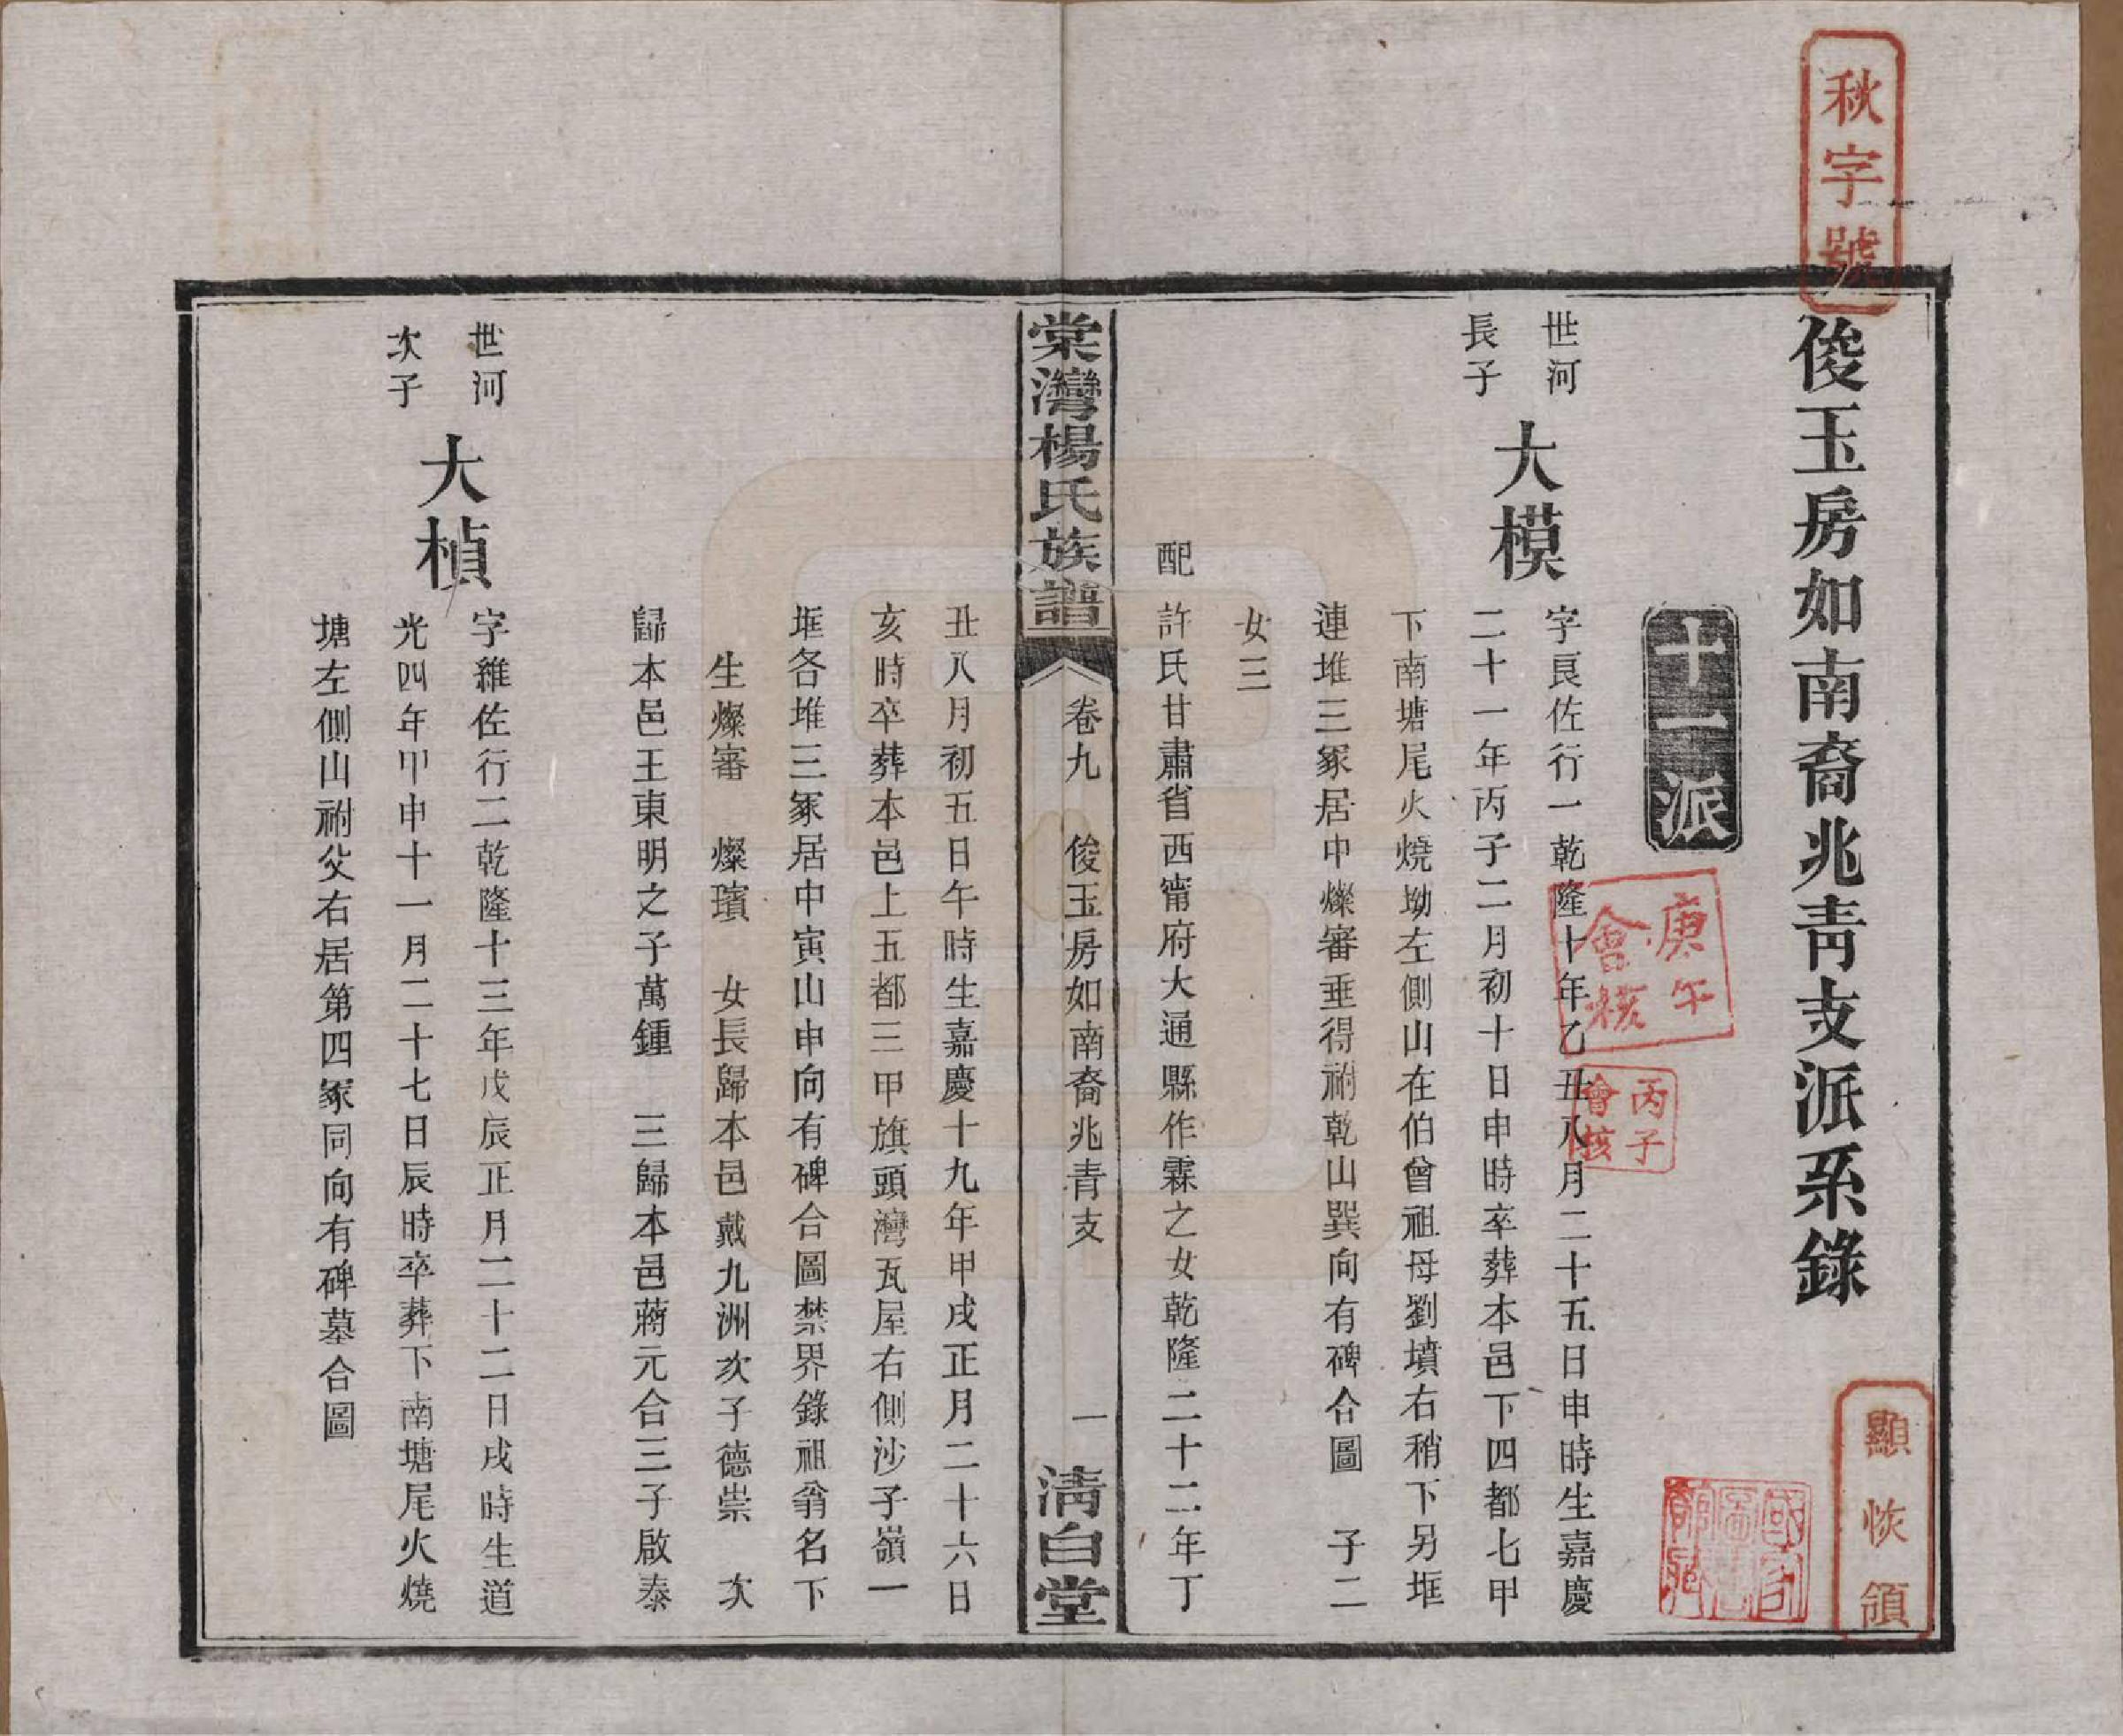 秋字號
俊玉房如南裔兆靑支派系錄
顯恢領
國家圖書館藏
十一派
庚午會核
丙子會核
世河長子
大模
字良佐行一乾隆十年乙丑八月二十五日申時生嘉慶
二十一年丙子二月初十日申時卒葬本邑下四都七甲
下南塘尾火燒坳左側山在伯曾祖母劉墳右稍下另堆
連堆三冢居中燦審垂得祔乾山巽向有碑合圖 子二
女三
配 許氏甘肅省西甯府大通縣作霖之女乾隆二十二年丁
棠灣楊氏族譜 卷九 俊玉房如南裔兆青支 一 淸白堂
丑八月初五日午時生嘉慶十九年甲戌正月二十六日
亥時卒葬本邑上五都三甲旗頭灣瓦屋右側沙子嶺一
堆各堆三冢居中寅山申向有碑合圖禁界錄祖翁名下
生燦審 燦璸 女長歸本邑戴九洲次子德崇 次
歸本邑王東明之子萬鍾 三歸本邑蔣元合三子啟泰
世河次子
大楨
字維佐行二乾隆十三年戊辰正月二十二日戌時生道
光四年甲申十一月二十七日辰時卒葬下南塘尾火燒
塘左側山祔父右居第四冢同向有碑墓合圖